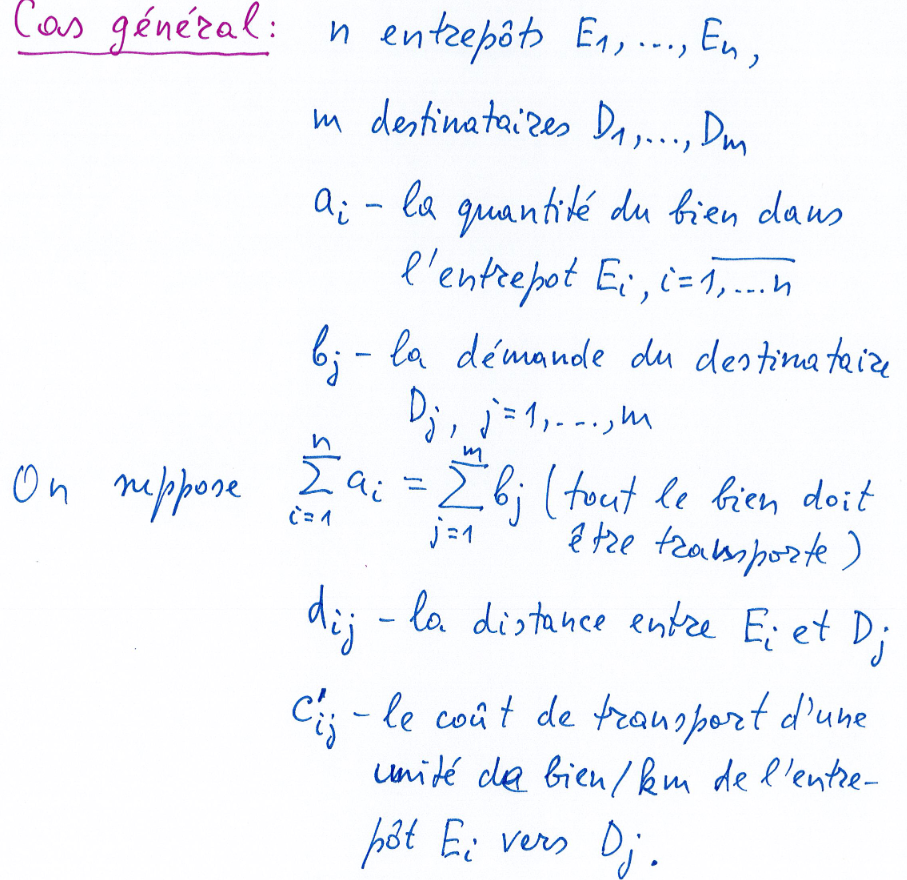 Cas général: n entrepôts E₁, ..., Eₙ,
m destinataires D₁, ..., Dₘ
aᵢ - la quantité du bien dans
l'entrepot Eᵢ, i = \overline{1, ... n}
bⱼ - la démande du destinataire
Dⱼ, j = 1, ..., m
On suppose \sum_{i=1}^{n} aᵢ = \sum_{j=1}^{m} bⱼ (tout le bien doit
être transporte)
dᵢⱼ - la distance entre Eᵢ et Dⱼ
c'ᵢⱼ - le coût de transport d'une
unité de bien/km de l'entre-
pôt Eᵢ vers Dⱼ.